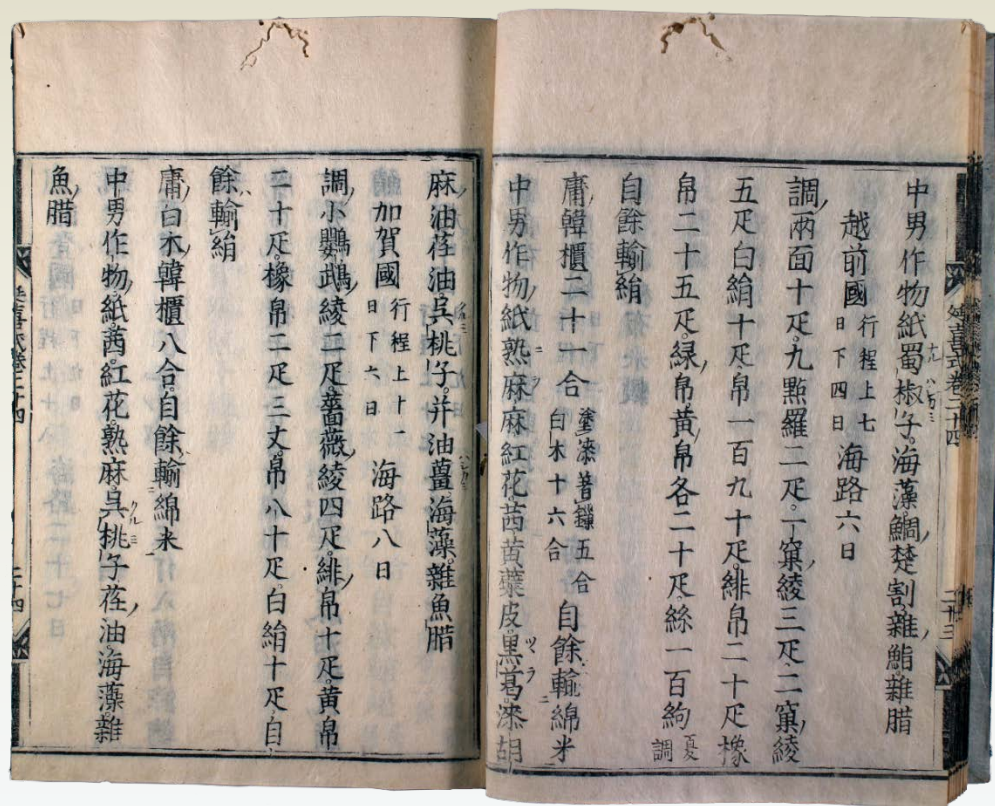 中男作物紙蜀椒子海藻鯛楚割雜鮨雜腊
越前國行程上七日下四日海路六日
調兩面十疋九點羅二疋一窠綾三疋二窠綾
五疋白絹十疋帛一百九十疋緋帛二十疋橡
帛二十五疋緑帛黄帛各二十疋絲一百絇
自餘輸絹
庸韓櫃二十一合塗漆著鏁五合白木十六合自餘輸綿米
中男作物紙熟麻麻紅花茜黄蘗皮黒葛漆胡
麻油荏油呉桃子并油薑海藻雜魚腊
加賀國行程上十一日下六日海路八日
調小鸚鵡綾二疋薔薇綾四疋緋帛十疋黄帛
二十疋橡帛二疋三丈帛八十疋白絹十疋自
餘輸絹
庸白木韓櫃八合自餘輸綿米
中男作物紙茜紅花熟麻呉桃子荏油海藻雜
魚腊